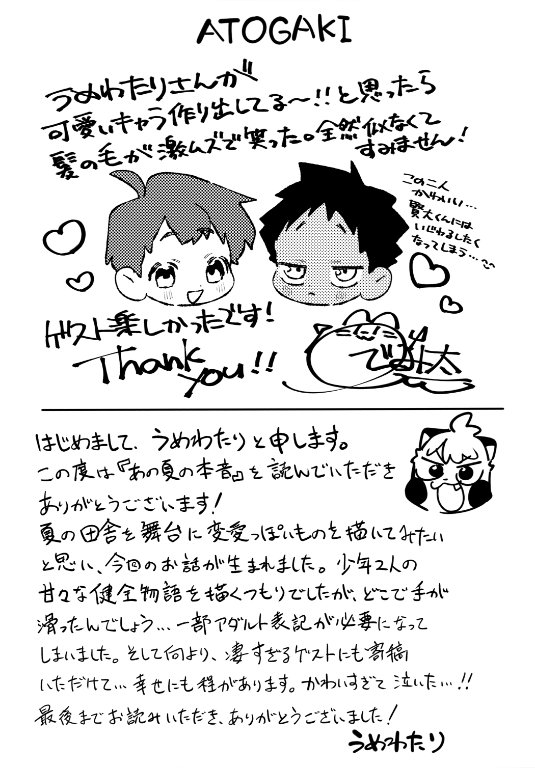 ATOGAKI
うめわたりさんが
可愛いキャラ作り出してる〜!!と思ったら
髪の毛が激ムズで笑った。全然似なくて
すみません!
この二人
かわいい…
賢太くんには
いじわるしたく
なってしまう…
ゲスト楽しかったです!
Thank
you!!
はじめまして、うめわたりと申します。
この度は『あの夏の本音』を読んでいただき
ありがとうございます!
夏の田舎を舞台に変愛っぽいものを描いてみたい
と思い、今回のお話が生まれました。少年2人の
甘々な健全物語を描くつもりでしたが、どこで手が
滑ったんでしょう…一部アダルト表記が必要になって
しまいました。そして何より、凄すぎるゲストにも寄稿
いただけて…幸せにも程があります。かわいすぎて泣いた…!!
最後までお読みいただき、ありがとうございました!
うめわたり